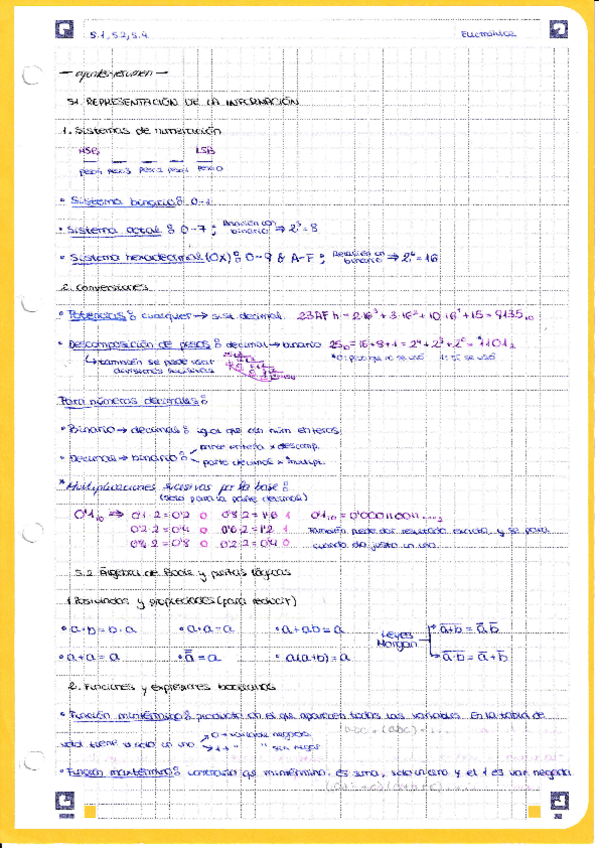 5.1, 5.2, 5.4. Electrónica
— apuntes resumen —
5.1. REPRESENTACIÓN DE LA INFORMACIÓN
1. Sistemas de numeración
MSB LSB
peso 4 peso 3 peso 2 peso 1 peso 0
• Sistema binario: 0-1
• Sistema octal: 0-7; Relación con binario ⇒ 2³=8
• Sistema hexadecimal (0x): 0-9 & A-F; Relación con binario ⇒ 2⁴=16
2. Conversiones
• Potencias: cualquier → sist. decimal. 23AF h = 2·16³+3·16²+10·16¹+15 = 9135₁₀
• Descomposición de pesos: decimal → binario 25₁₀ = 16+8+1 = 2⁴+2³+2⁰ =
↳ también se puede usar divisiones sucesivas
Para números decimales:
• Binario → decimal: igual que con núm enteros.
• Decimal → binario: parte entera x descomp.
parte decimal x multipl.
* Multiplicaciones sucesivas por la base:
(solo para la parte decimal)
0'1₁₀ ⇒ 0'1·2=0'2 0 0'8·2=1'6 1
0'2·2=0'4 0 0'6·2=1'2 1 También puede dar resultado exacto, y se para
0'4·2=0'8 0 0'2·2=0'4 0 cuando da justo un uno.
5.2 Álgebra de Boole y puertas lógicas
1. Postulados y propiedades (para reducir)
• a·b = b·a • a·a = a • a+ab = a Leyes Morgan
• a+a = a • a̿ = a • a(a+b) = a
2. Funciones y expresiones booleanas
• Función minitérmino: producto en el que aparecen todas las variables. En la tabla de
valor tiene solo un uno 0 = variable negada
1 = " " sin negar
• Función maxitérmino: contrario que minitérmino: es suma, solo un cero y el 1 es var. negada